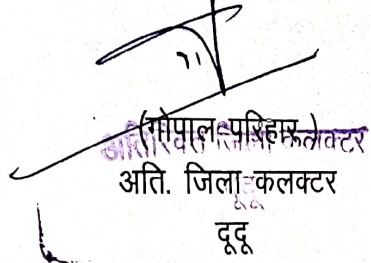 (गोपाल परिहार)
अतिरिक्त जिला कलक्टर
अति. जिला कलक्टर
दूदू